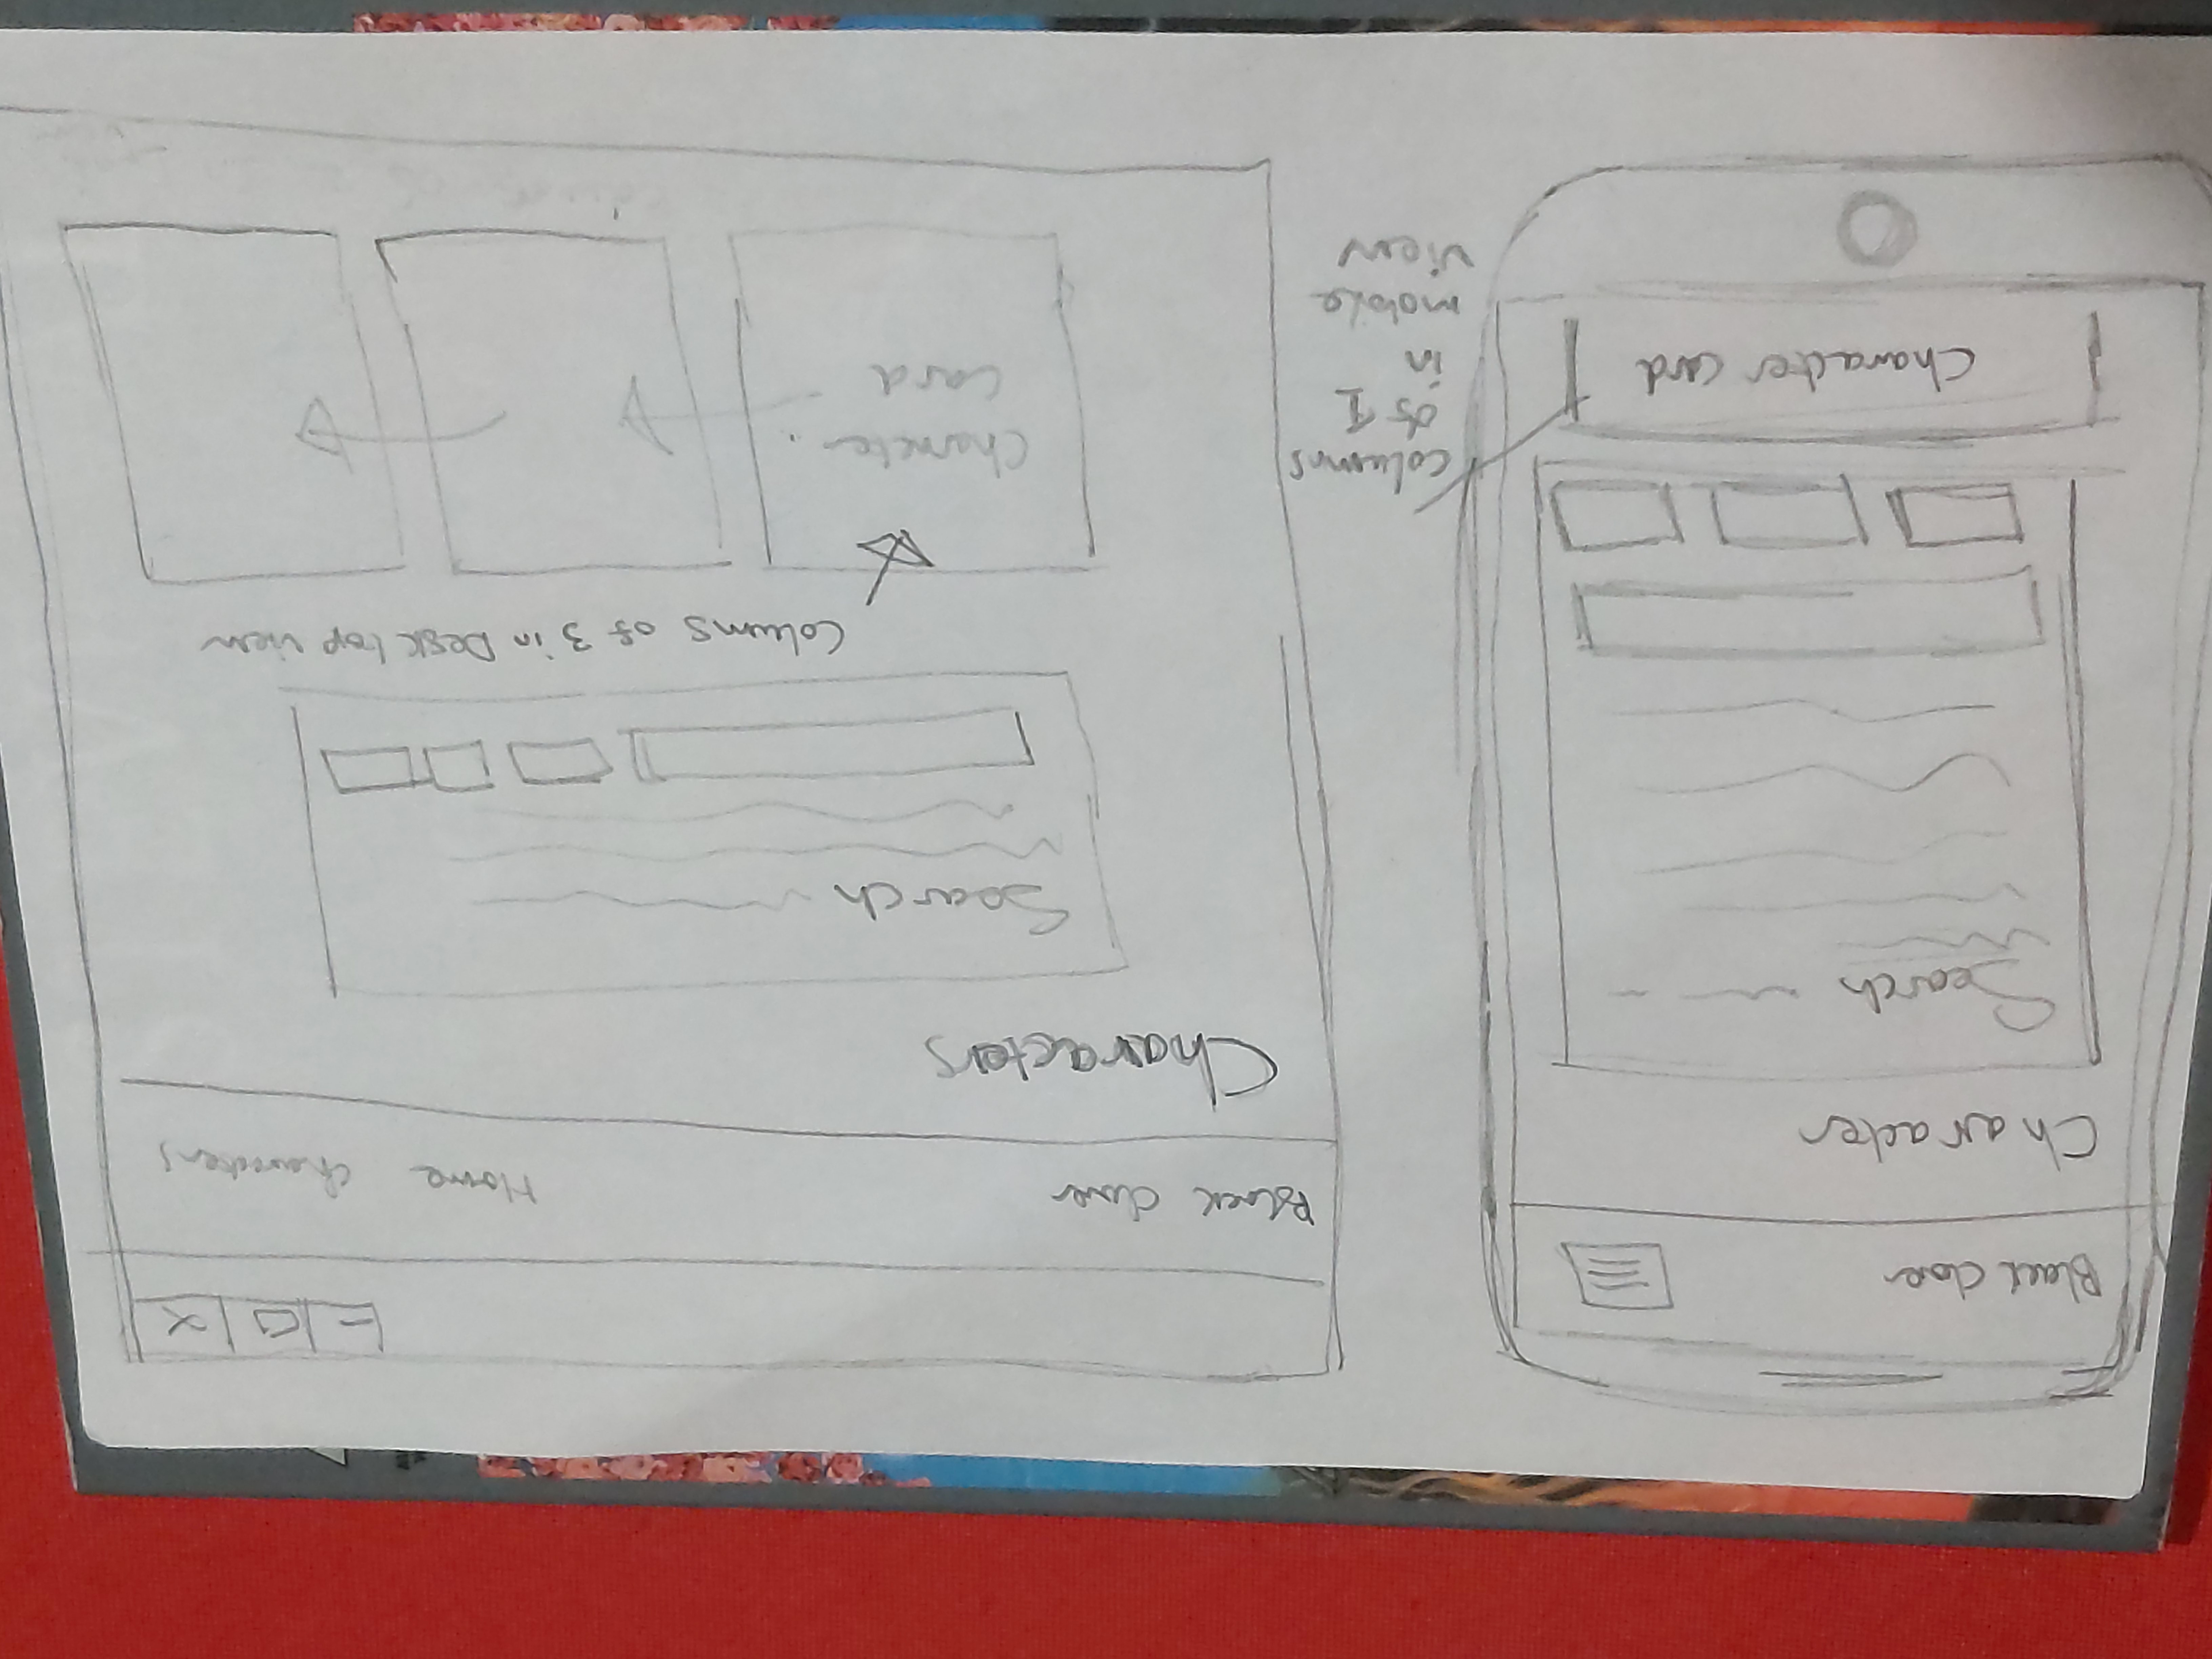 Black clover
Character
Search
Character card
columns
of 1
in
mobile
view
Black clover
Home characters
Characters
Search
Colums of 3 in Desktop view
Character
card